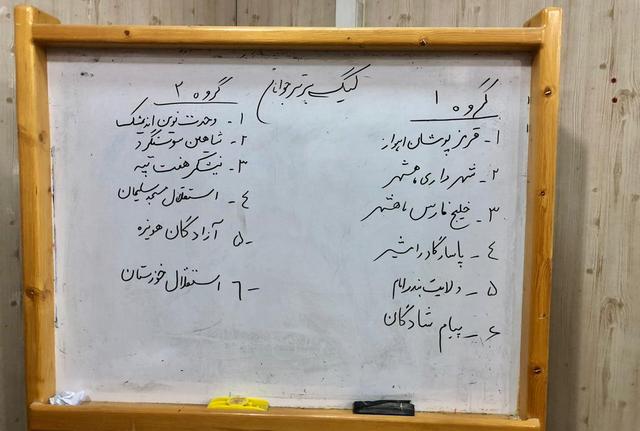 لیگ برتر جوانان
گروه ۱
۱- قرمز پوشان اهواز
۲- شهرداری ماهشهر
۳- خلیج فارس ماهشهر
۴- پاسارگاد رامشیر
۵- ولایت بندر امام
۶- پیام شادگان
گروه ۲
۱- وحدت نوین اندیمشک
۲- شاهین سوسنگرد
۳- نیشکر هفت تپه
۴- استقلال مسجدسلیمان
۵- آزادگان هویزه
۶- استقلال خوزستان